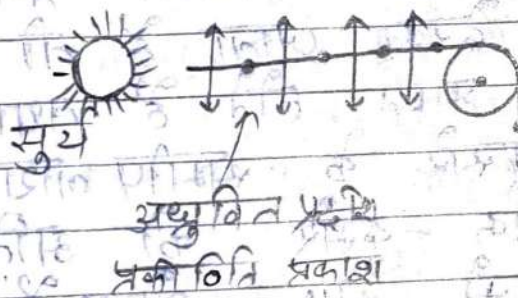 सुर्य
अध्रुवित प्रकाश
प्रकीर्णित प्रकाश